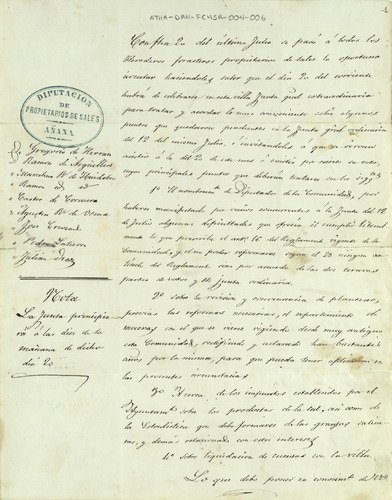 ATHA-DAH-FCHSA-004-006
DIPUTACION
DE
PROPIETARIOS DE SALES
AÑANA
Gregorio de Herran
Ramon de Argüelles
Ramon
Castor de
José
Julian
Nota
La Junta principia
rá a las diez de la
mañana de dicho
dia 20
Con fha 20 del último Julio se pasó á todos los
Herederos forasteros propietarios de sales la oportuna
circular haciendoles saber que el dia 20 del corriente
habrá de celebrarse en esta villa Junta gral extraordinaria
para tratar y acordar lo mas conveniente sobre algunos
puntos que quedaron pendientes en la Junta ordinaria
del 12 del mismo Julio, é invitandoles á que se sirvan
asistir á la del 20 de este mes
principales puntos que deberán tratarse
1º El nombramto de Diputados de la Comunidad, por
haberse manifestado por varios concurrentes á la Junta del 12
de Julio algunas dificultades que ofrecia el cumplir
mente lo que prescribe el artº 16 del Reglamento vigente de la
Comunidad, y el no poder reformarse segun el 20 ningun ar
ticulo del Reglamento sino por acuerdo de las dos terceras
partes de votos y en Junta ordinaria.
2º Sobre la revision y conveniencia de plantear,
previas las reformas necesarias, el repartimiento de
muera, con el que se viene rigiendo desde muy antiguo
esta Comunidad, rectificado y aclarado han bastantes
años por la misma, para que pueda tener aplicacion en
las presentes circunstancias
3º Acerca de los impuestos establecidos por el
Ayuntamto sobre los productos de la sal, asi como de
la Estadistica que debe formarse de las granjas saline
ras, y demás relacionado con este interes
4º Sobre liquidacion de cuentas con la villa.
Lo que debo poner en conocimto de